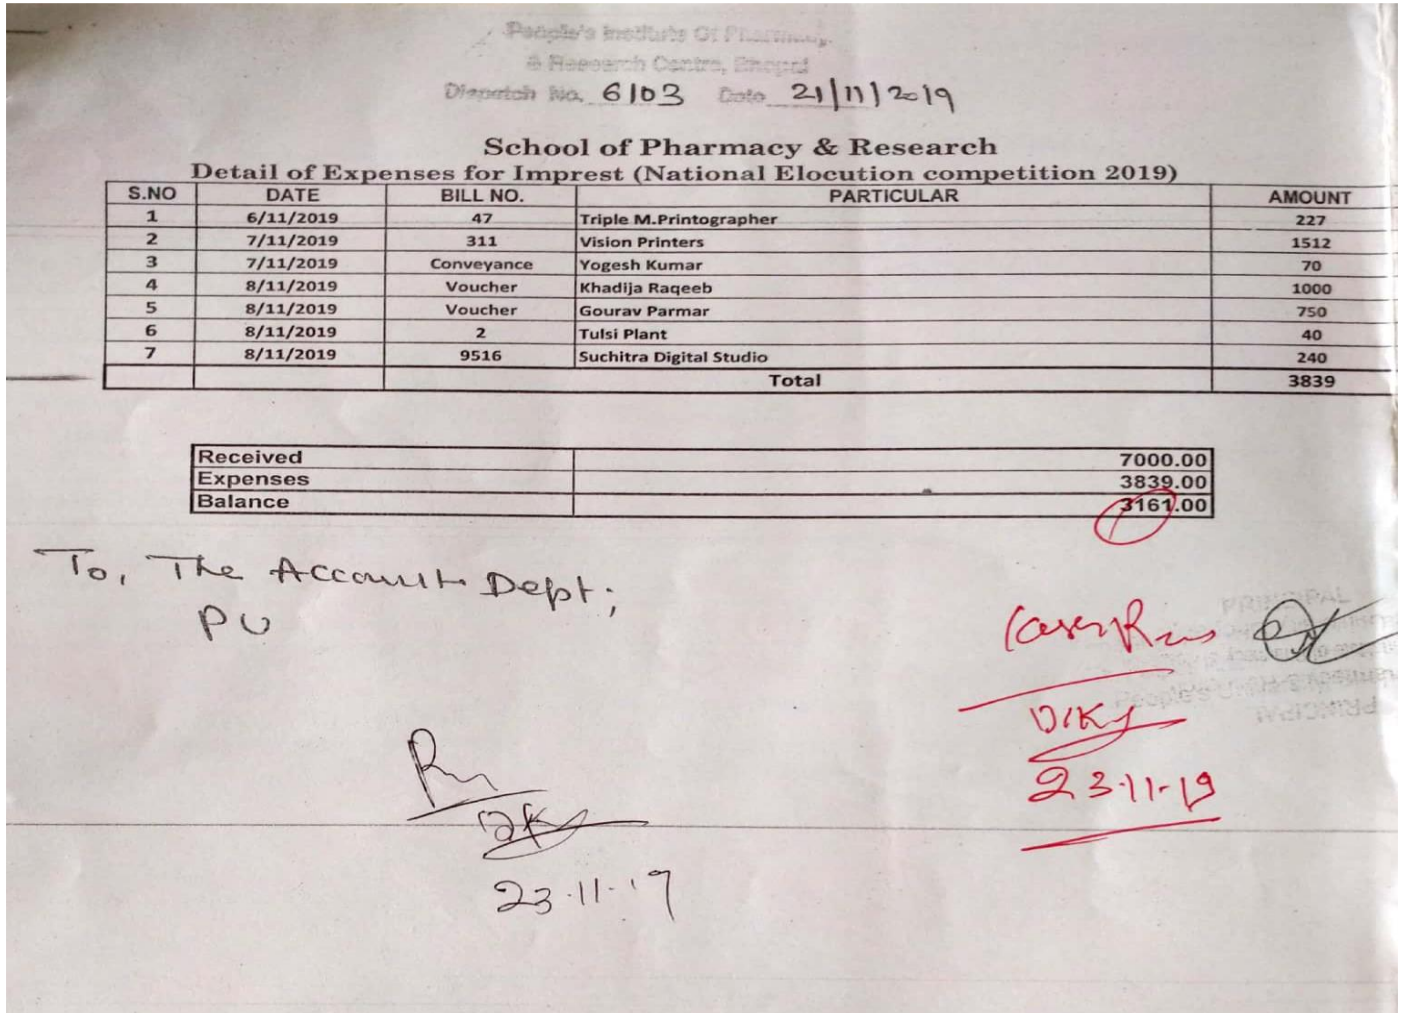 People's Institute Of Pharmacy
& Research Centre, Bhopal
Dispatch No. 6103 Date 21/11/2019
School of Pharmacy & Research
Detail of Expenses for Imprest (National Elocution competition 2019)
S.NO DATE BILL NO. PARTICULAR AMOUNT
1 6/11/2019 47 Triple M.Printographer 227
2 7/11/2019 311 Vision Printers 1512
3 7/11/2019 Conveyance Yogesh Kumar 70
4 8/11/2019 Voucher Khadija Raqeeb 1000
5 8/11/2019 Voucher Gourav Parmar 750
6 8/11/2019 2 Tulsi Plant 40
7 8/11/2019 9516 Suchitra Digital Studio 240
Total 3839
Received 7000.00
Expenses 3839.00
Balance 3161.00
To, The Accounts Dept;
PU
PRINCIPAL
23.11.19
PRINCIPAL
23.11.19